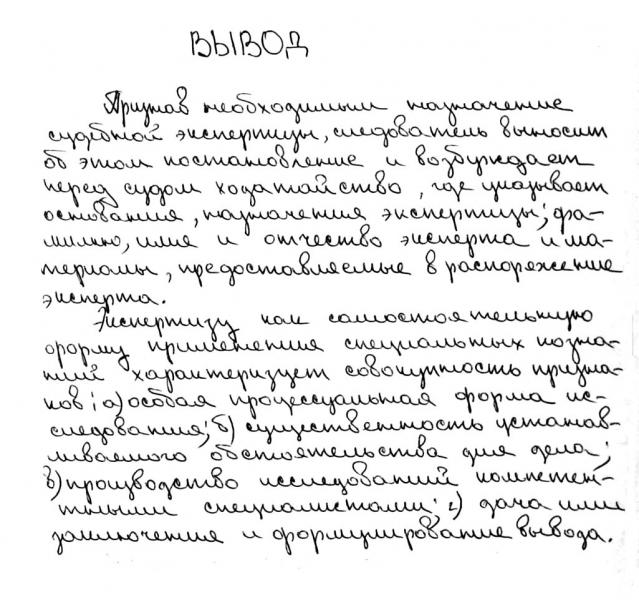 ВЫВОД
Признав необходимым назначение
судебной экспертизы, следователь выносит
об этом постановление и возбуждает
перед судом ходатайство, где указывает
основания, назначения экспертизы; фа-
милию, имя и отчество эксперта и ма-
териалы, предоставляемые в распоряжение
эксперта.
Экспертизу как самостоятельную
форму применения специальных позна-
ний характеризует совокупность призна-
ков: а) особая процессуальная форма ис-
следования; б) существенность устанав-
ливаемого обстоятельства для дела;
в) производство исследований компетен-
тными специалистами; г) дача ими
заключения и формулирование вывода.